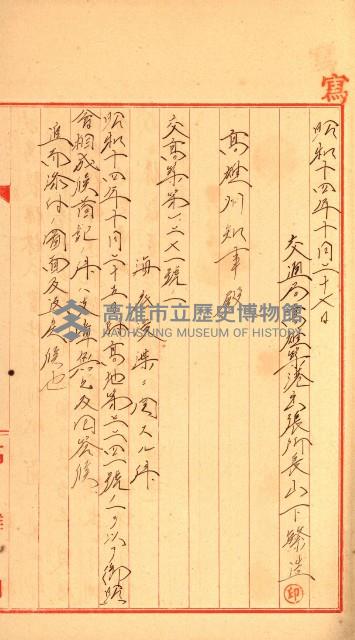 寫
昭和十四年十月二十七日
交通局高雄築港出張所長山下繁造 印
高雄州知事殿
交高築第一二七一號ノ一
海底浚渫ニ関スル件
昭和十四年十月二十五日附高地第二二四一號ノ一ヲ以テ御照
會相成候首記ノ件ハ支障無之及回答候
追而添付ノ圖面及返戻候也
高雄市立歷史博物館
KAOHSIUNG MUSEUM OF HISTORY